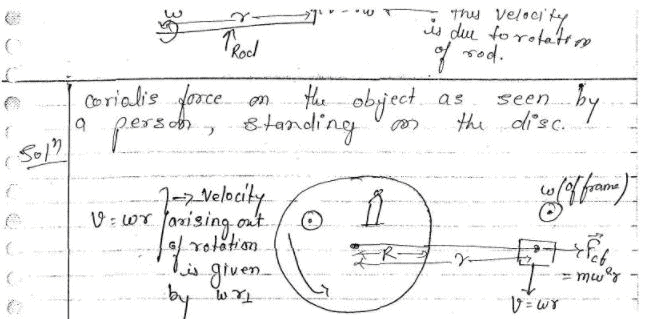 ω r
this velocity
is due to rotation
of rod.
Rod
corialis force on the object as seen by
a person, standing on the disc.
Solⁿ
v = ωr } → Velocity
arising out
of rotation
is given
by ωr⊥
R
r
ω (of frame)
F⃗cf
= mω²r
v = ωr